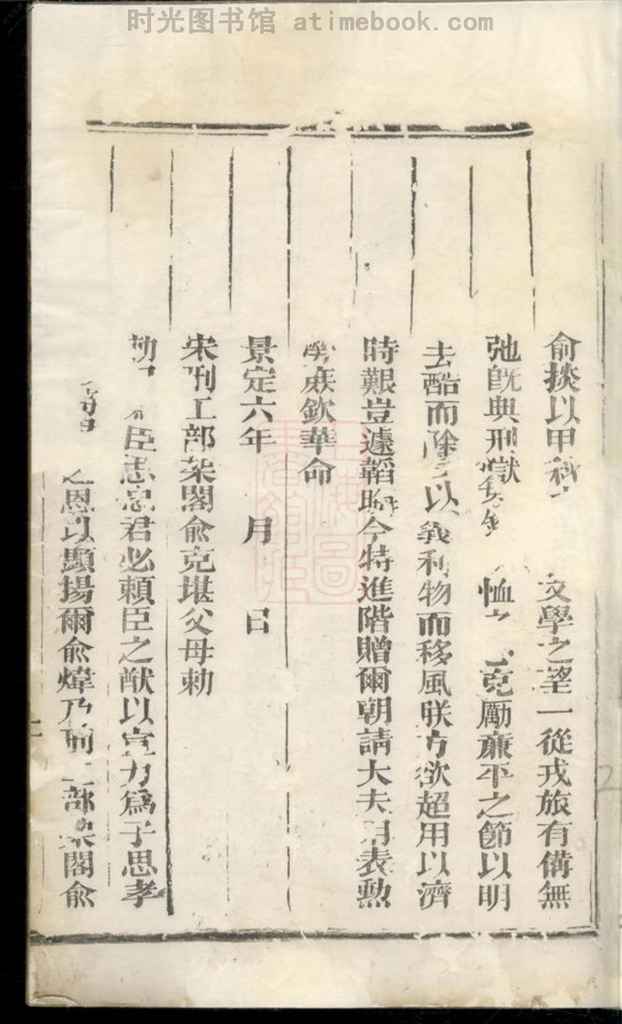 时光图书馆 atimebook.com
俞掞以甲 文學之望一從戎旅有備無
弛旣典刑獄 恤 克勵廉平之節以明
去酷而 以義利物而移風朕方欲超用以濟
時艱豈遽韜 今特進階贈爾朝請大夫用表勲
庶欽華命
景定六年 月 日
宋刑工部架閣俞克堪父母勅
勅 臣 君必賴臣之猷以宣力爲子思孝
恩以顯揚爾俞煒乃 工部架閣俞